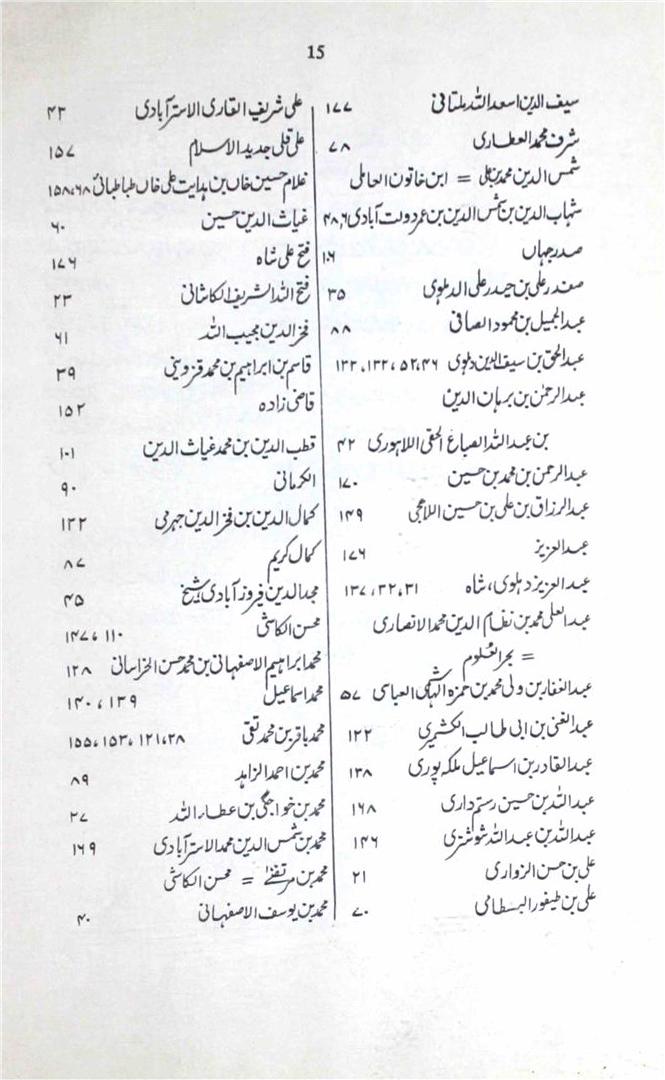 15
سیف الدین اسعد اللہ ملتانی ۱۷۷
شرف محمد العطاری ۷۸
شمس الدین محمد بن علی = ابن خاتون العاملی
شہاب الدین بن شمس الدین بن عمر دولت آبادی ۶، ۴۸
صدر جہاں ۱۶
صفدر علی بن حیدر علی الدہلوی ۳۵
عبد الجمیل بن محمود الصافی ۸۸
عبد الحق بن سیف الدین دہلوی ۴۶، ۵۲، ۱۳۲، ۱۲۲
عبد الرحمٰن بن برہان الدین
بن عبد اللہ الصباغ الحقی اللاہوری ۴۲
عبد الرحمن بن محمد بن حسین ۱۷۰
عبد الرزاق بن علی بن حسین اللاھجی ۱۴۹
عبد العزیز ۱۷۶
عبد العزیز دہلوی، شاہ ۳۱، ۳۲، ۱۳۷
عبد العلی محمد بن نظام الدین محمد الانصاری
= بحر العلوم
عبد الغفار بن ولی محمد بن حمزہ الہاکی العباسی ۵۷
عبد الغنی بن ابی طالب الکشمیری ۱۲۲
عبد القادر بن اسماعیل ملکہ پوری ۱۳۸
عبد اللہ بن حسین رستم داری ۱۶۸
عبد اللہ بن عبد اللہ شوشتری ۱۴۶
علی بن حسن الزواری ۲۱
علی بن طیفور البسطامی ۷۰
علی شریف القاری الاسترآبادی ۴۳
علی قلی جدید الاسلام ۱۵۷
غلام حسین خاں بن ہدایت علی خاں طباطبائی ۶۸، ۱۵۸
غیاث الدین حسین ۶۰
فتح علی شاہ ۱۷۶
فتح اللہ الشریف الکاشانی ۲۳
فخر الدین مجیب اللہ ۶۱
قاسم بن ابراہیم بن محمد قزوینی ۳۹
قاضی زادہ ۱۵۲
قطب الدین بن محمد غیاث الدین ۱۰۱
الکرمانی ۹۰
کمال الدین بن فخر الدین جہرمی ۱۳۲
کمال کریم ۸۷
مجد الدین فیروز آبادی، شیخ ۴۵
محسن الکاشی ۱۱۰، ۱۴۷
محمد ابراہیم الاصفہانی بن محمد حسن الخراسانی ۱۲۸
محمد اسماعیل ۱۳۹، ۱۴۰
محمد باقر بن محمد تقی ۲۸، ۱۲۱، ۱۵۳، ۱۵۵
محمد بن احمد الزاہد ۸۹
محمد بن خواجگی بن عطاء اللہ ۲۷
محمد بن شمس الدین محمد الاسترآبادی ۱۶۹
محمد بن مرتضےٰ = محسن الکاشی
محمد بن یوسف الاصفہانی ۴۰